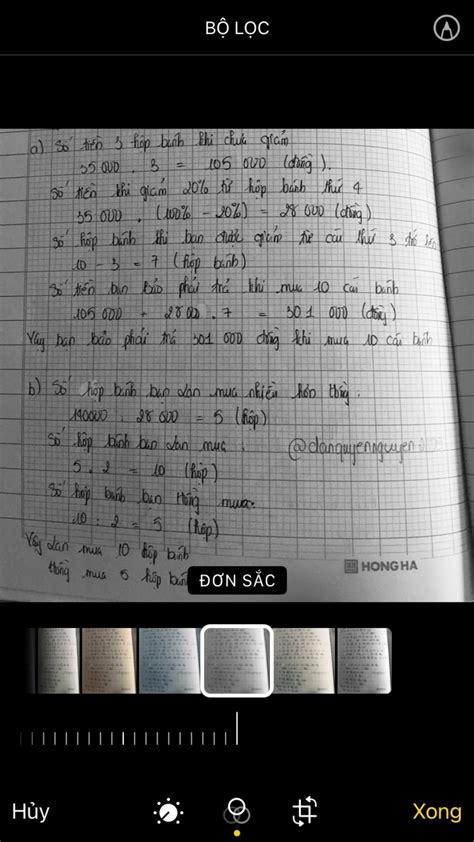 BỘ LỌC
a) Số tiền 3 hộp bánh khi chưa giảm
35 000 . 3 = 105 000 (đồng).
Số tiền khi giảm 20% từ hộp bánh thứ 4
35 000 . (100% - 20%) = 28 000 (đồng)
Số hộp bánh khi bạn được giảm từ cái thứ 3 trở lên
10 - 3 = 7 (hộp bánh)
Số tiền bạn Bảo phải trả khi mua 10 cái bánh
105 000 + 28 00 . 7 = 301 000 (đồng)
Vậy bạn bảo phải trả 301 000 đồng khi mua 10 cái bánh
b) Số hộp bánh bạn Lan mua nhiều hơn Hồng.
140000 : 28 000 = 5 (hộp)
Số hộp bánh bạn Lan mua.
5 . 2 = 10 (hộp)
Số hộp bánh bạn Hồng mua:
10 : 2 = 5 (hộp)
Vậy Lan mua 10 hộp bánh
Hồng mua 5 hộp bánh
HONG HA
ĐƠN SẮC
Hủy
Xong